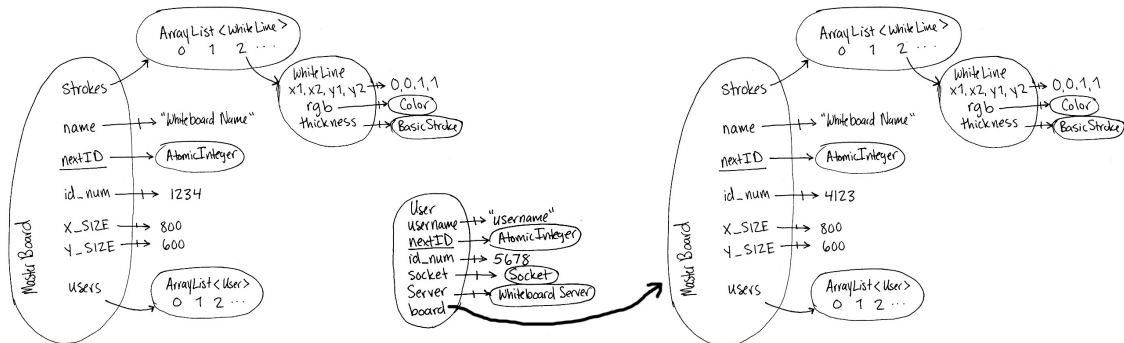 ArrayList <WhiteLine>
0 1 2 ...
WhiteLine
x1, x2, y1, y2 0,0,1,1
rgb Color
thickness BasicStroke
Master Board
strokes
name "Whiteboard Name"
nextID AtomicInteger
id_num 1234
X_SIZE 800
Y_SIZE 600
users
ArrayList <User>
0 1 2 ...
User
username "username"
nextID AtomicInteger
id_num 5678
socket Socket
Server Whiteboard Server
board
ArrayList <WhiteLine>
0 1 2 ...
WhiteLine
x1, x2, y1, y2 0,0,1,1
rgb Color
thickness BasicStroke
Master Board
strokes
name "Whiteboard Name"
nextID AtomicInteger
id_num 4123
X_SIZE 800
Y_SIZE 600
users
ArrayList <User>
0 1 2 ...